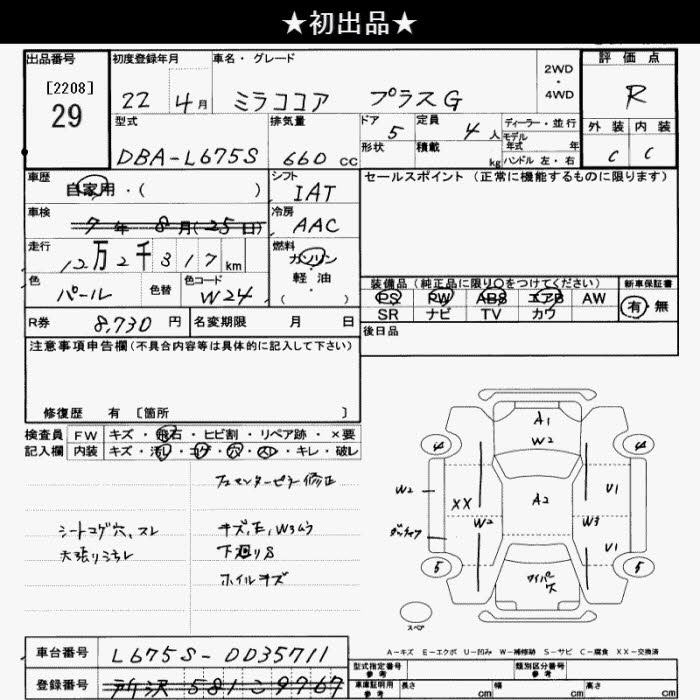 ★初出品★
出品番号 初度登録年月 車名・グレード 2WD・4WD 評価点
[2208]
29 22 4月 ミラココア プラスG R
型式 排気量 ドア 定員 ディーラー・並行 外装 内装
DBA-L675S 660cc 5 4人 モデル年式 年 C C
形状 積載 kg ハンドル 左・右
車歴 自家用・( ) シフト IAT セールスポイント(正常に機能するものに限ります)
車検 7年 8月(25日) 冷房 AAC
走行 12万2千317km 燃料 ガソリン 軽油 ( )
色 パール 色替 色コード W24
装備品(純品に限り○をつけてください) 新車保証書
PS PW ABS エアB AW 有・無
SR ナビ TV カワ
R券 8,730円 名変期限 月 日 後日品
注意事項申告欄(不具合内容等は具体的に記入して下さい)
修復歴 有 [箇所 ]
検査員 FW キズ・飛石・ヒビ割・リペア跡・×要
記入欄 内装 キズ・汚レ・コゲ・穴・スレ・キレ・破レ
左センターピラー修正
シートコゲ穴、スレ キズ,E,W3ムラ
天張りヨゴレ 下廻りS
ホイルキズ
A1
W2
4 4
W2 XX A2 U1
W2 W3
U1
5 5
ワイパー
ス
スペア
A-キズ E-エクボ U-凹み W-補修跡 S-サビ C-腐食 XX-交換済
車台番号 L675S-0035711 型式指定番号 参考 類別区分番号 参考
登録番号 所沢 581 こ 9767 車庫証明用 参考 長さ cm 幅 cm 高さ cm